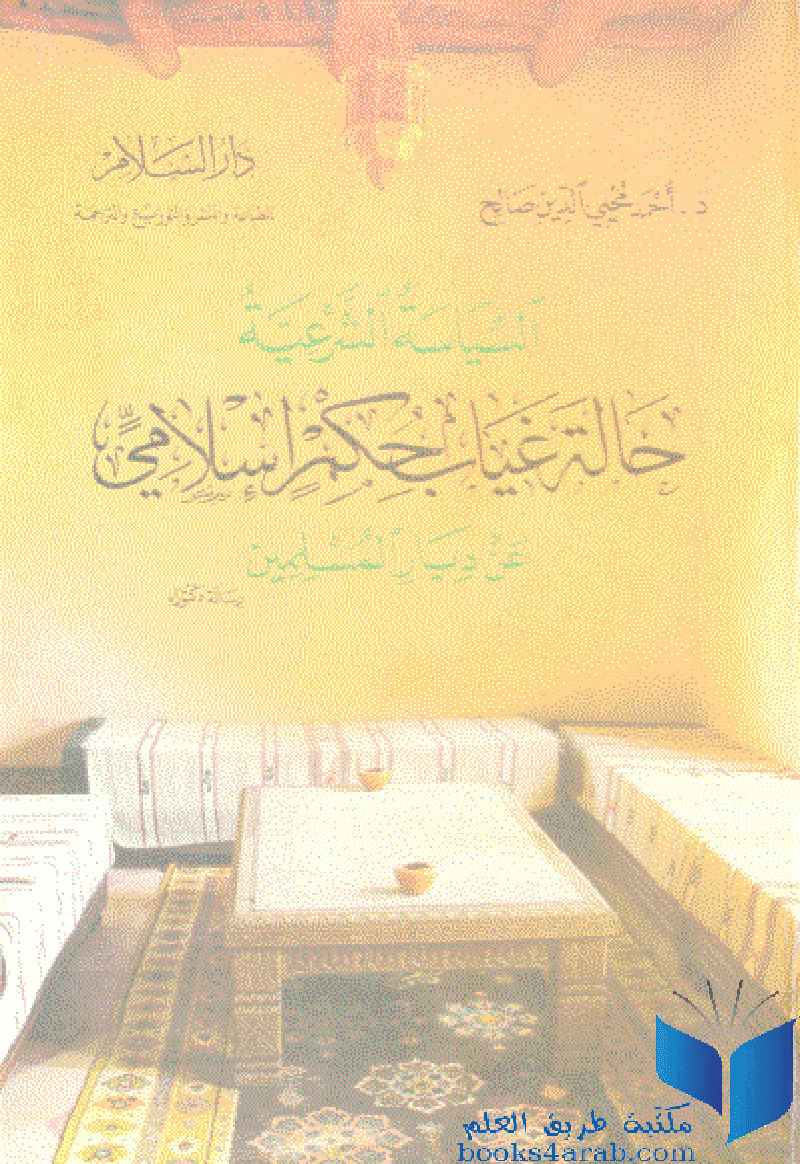 دار السلام
للطباعة والنشر والتوزيع والترجمة
د. أحمد محيي الدين صالح
السِّيَاسَةُ الشَّرْعِيَّةُ
حَالَةَ غِيَابِ حُكْمٍ إِسْلَامِيٍّ
عَنْ دِيَارِ الْمُسْلِمِينَ
رسالة دكتوراه
مكتبة طريق العلم
books4arab.com